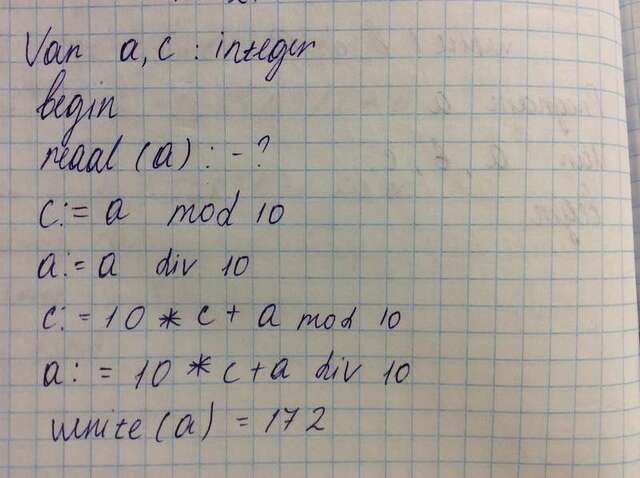 Var a, c : integer
begin
read (a) : - ?
c := a mod 10
a := a div 10
c := 10 * c + a mod 10
a := 10 * c + a div 10
write (a) = 172